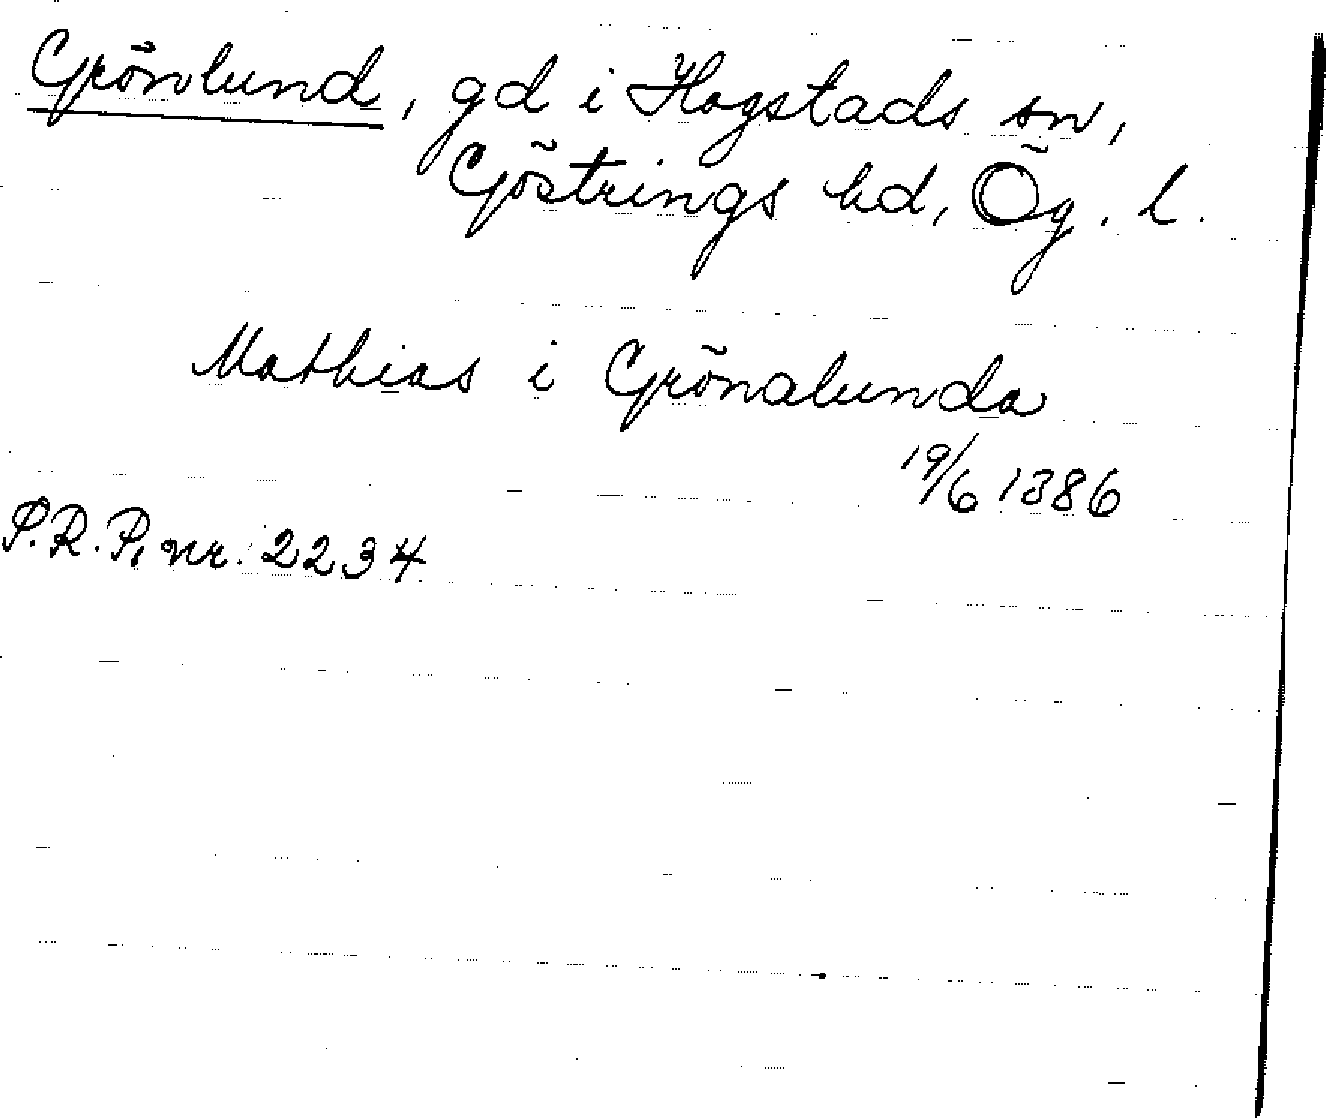 Grönlund, gd i Hogstads sn,
Göstrings hd, Ög. l.
Mathias i Grönalunda
19/6 1386
S.R.P. nr. 2234